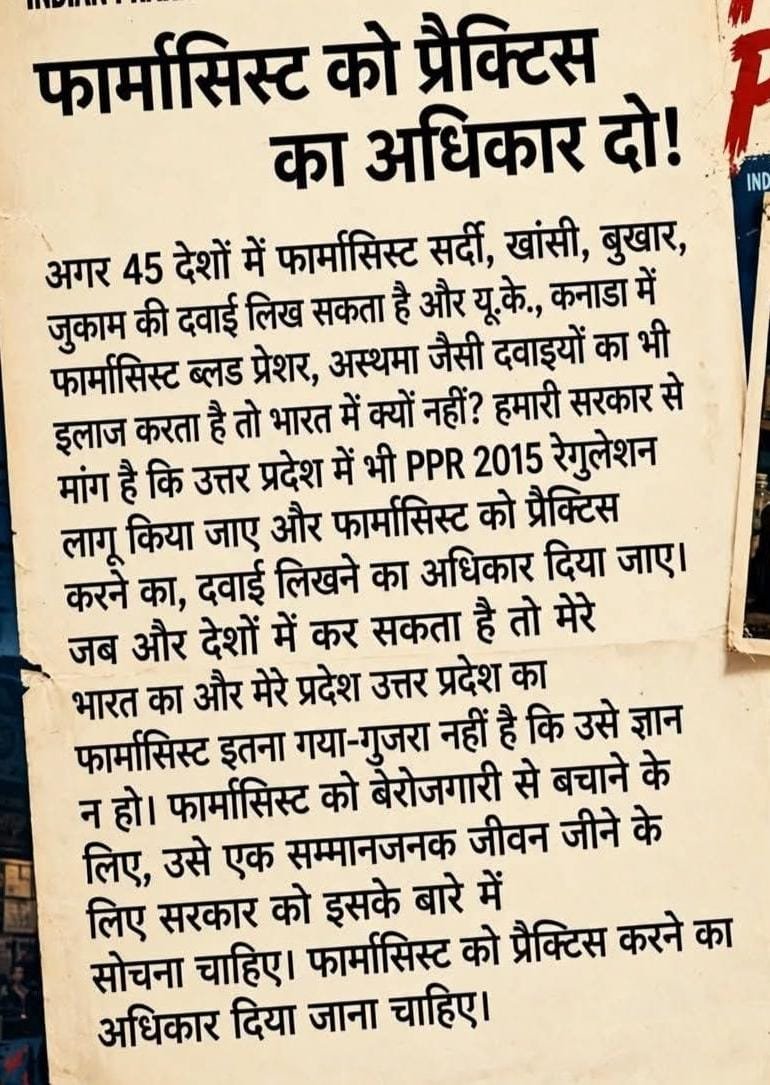 फार्मासिस्ट को प्रैक्टिस
का अधिकार दो!
IND
अगर 45 देशों में फार्मासिस्ट सर्दी, खांसी, बुखार,
जुकाम की दवाई लिख सकता है और यू.के., कनाडा में
फार्मासिस्ट ब्लड प्रेशर, अस्थमा जैसी दवाइयों का भी
इलाज करता है तो भारत में क्यों नहीं? हमारी सरकार से
मांग है कि उत्तर प्रदेश में भी PPR 2015 रेगुलेशन
लागू किया जाए और फार्मासिस्ट को प्रैक्टिस
करने का, दवाई लिखने का अधिकार दिया जाए।
जब और देशों में कर सकता है तो मेरे
भारत का और मेरे प्रदेश उत्तर प्रदेश का
फार्मासिस्ट इतना गया-गुजरा नहीं है कि उसे ज्ञान
न हो। फार्मासिस्ट को बेरोजगारी से बचाने के
लिए, उसे एक सम्मानजनक जीवन जीने के
लिए सरकार को इसके बारे में
सोचना चाहिए। फार्मासिस्ट को प्रैक्टिस करने का
अधिकार दिया जाना चाहिए।